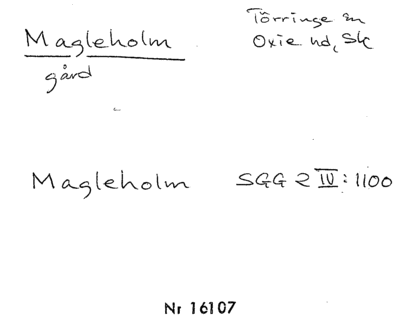 Magleholm
gård
Törringe sn
Oxie hd, Sk
Magleholm SGG 2 IV:1100
Nr 16107